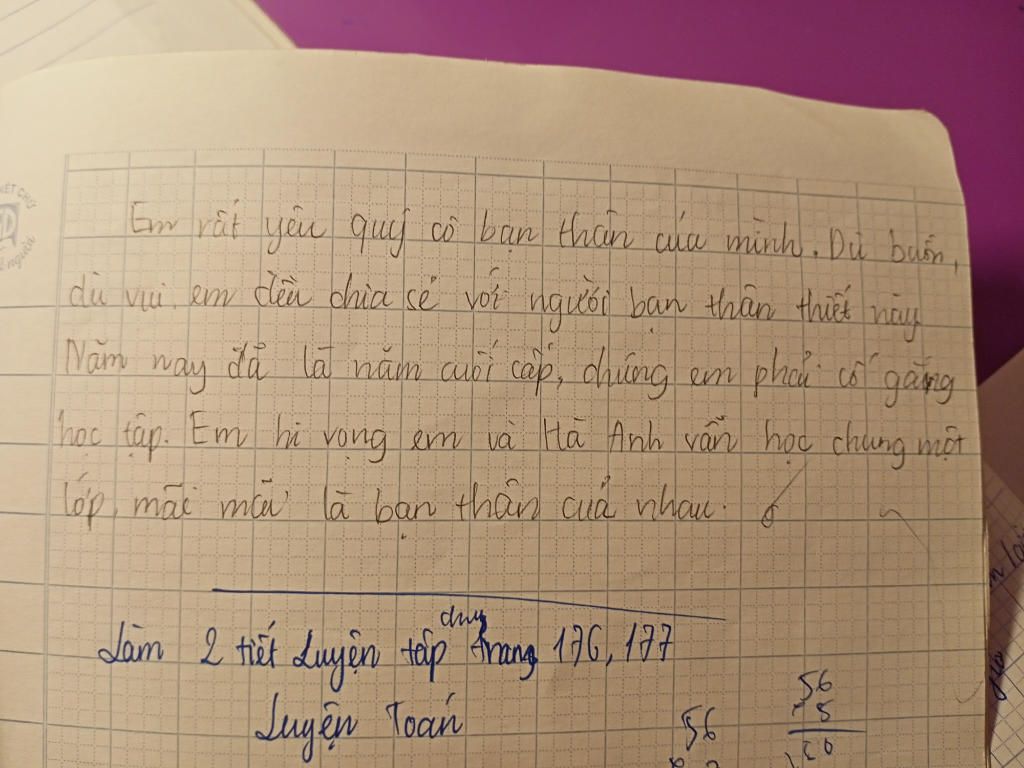 Em rất yêu quý cô bạn thân của mình. Dù buồn,
dù vui, em đều chia sẻ với người bạn thân thiết này
Năm nay đã là năm cuối cấp, chúng em phải cố gắng
học tập. Em hi vọng em và Hà Anh vẫn học chung một
lớp, mãi mãi là bạn thân của nhau.
chung
Làm 2 tiết Luyện tập trang 176, 177
Luyện Toán
56
56
5